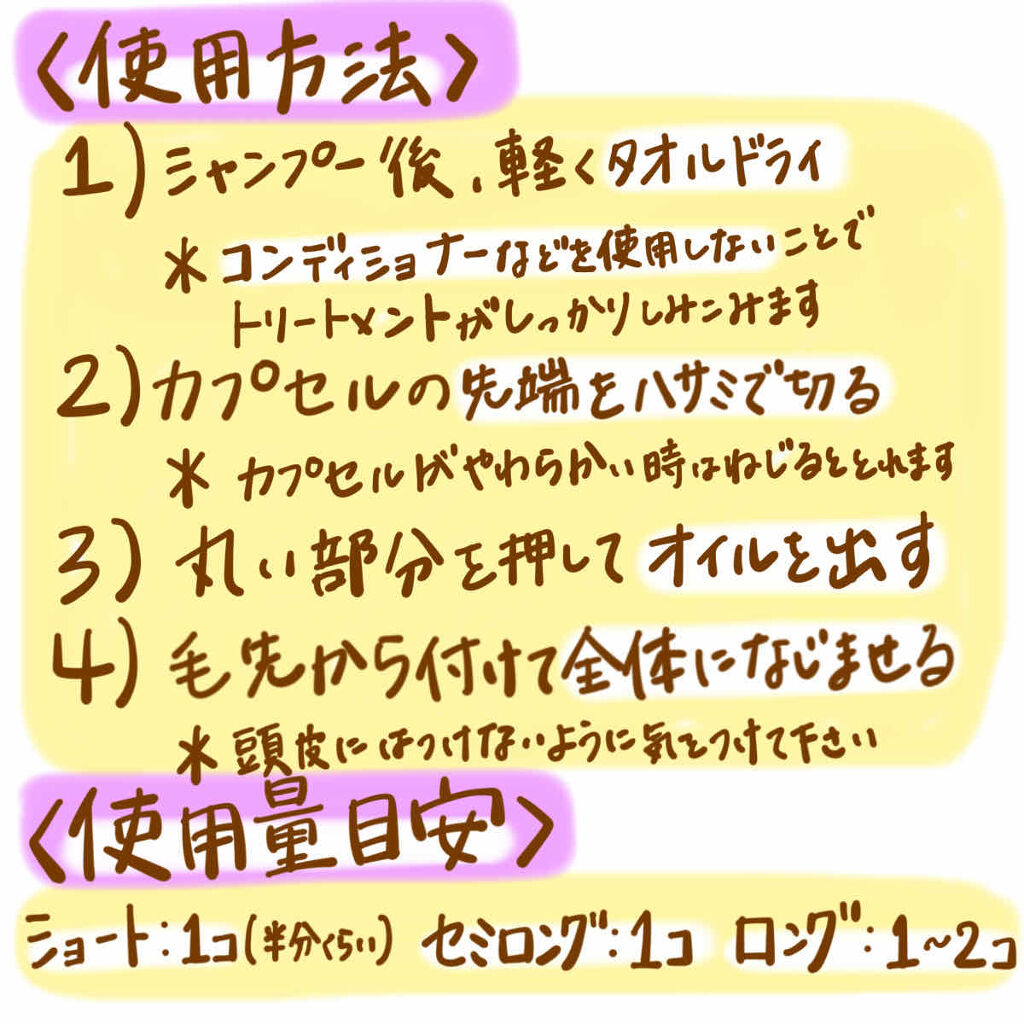 〈使用方法〉
1)シャンプー後、軽くタオルドライ
*コンディショナーなどを使用しないことで
トリートメントがしっかりしみこみます
2)カプセルの先端をハサミで切る
*カプセルがやわらかい時はねじるととれます
3)丸い部分を押してオイルを出す
4)毛先から付けて全体になじませる
*頭皮にはつけないように気をつけて下さい
〈使用量目安〉
ショート:1コ(半分くらい) セミロング:1コ ロング:1~2コ